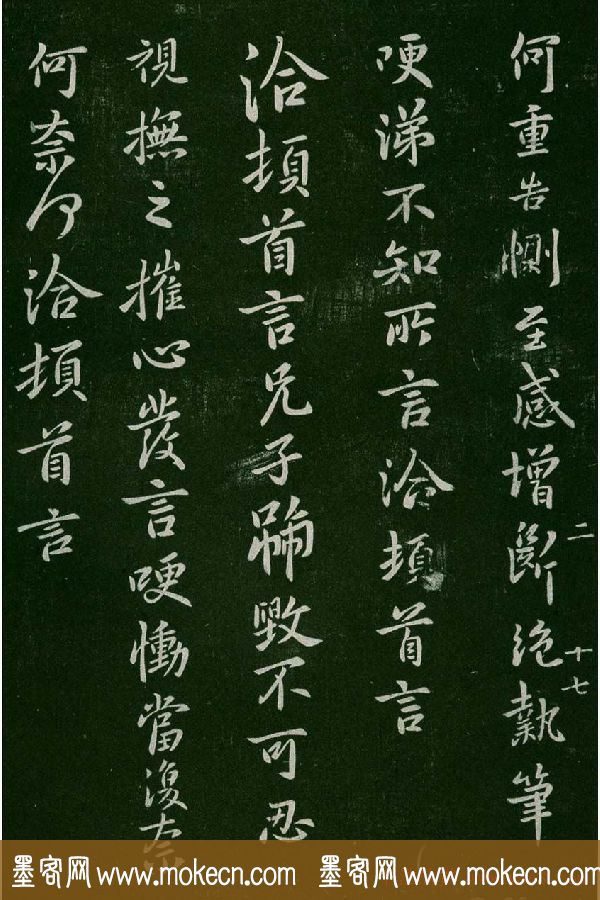 何重告惻至感增斷絶執筆
二
十七
哽涕不知所言洽頓首言
洽頓首言兄子號毀不可忍
視撫之摧心發言哽慟當復奈
何奈何洽頓首言
墨客网 www.mokecn.com 墨客网 www.mokecn.com